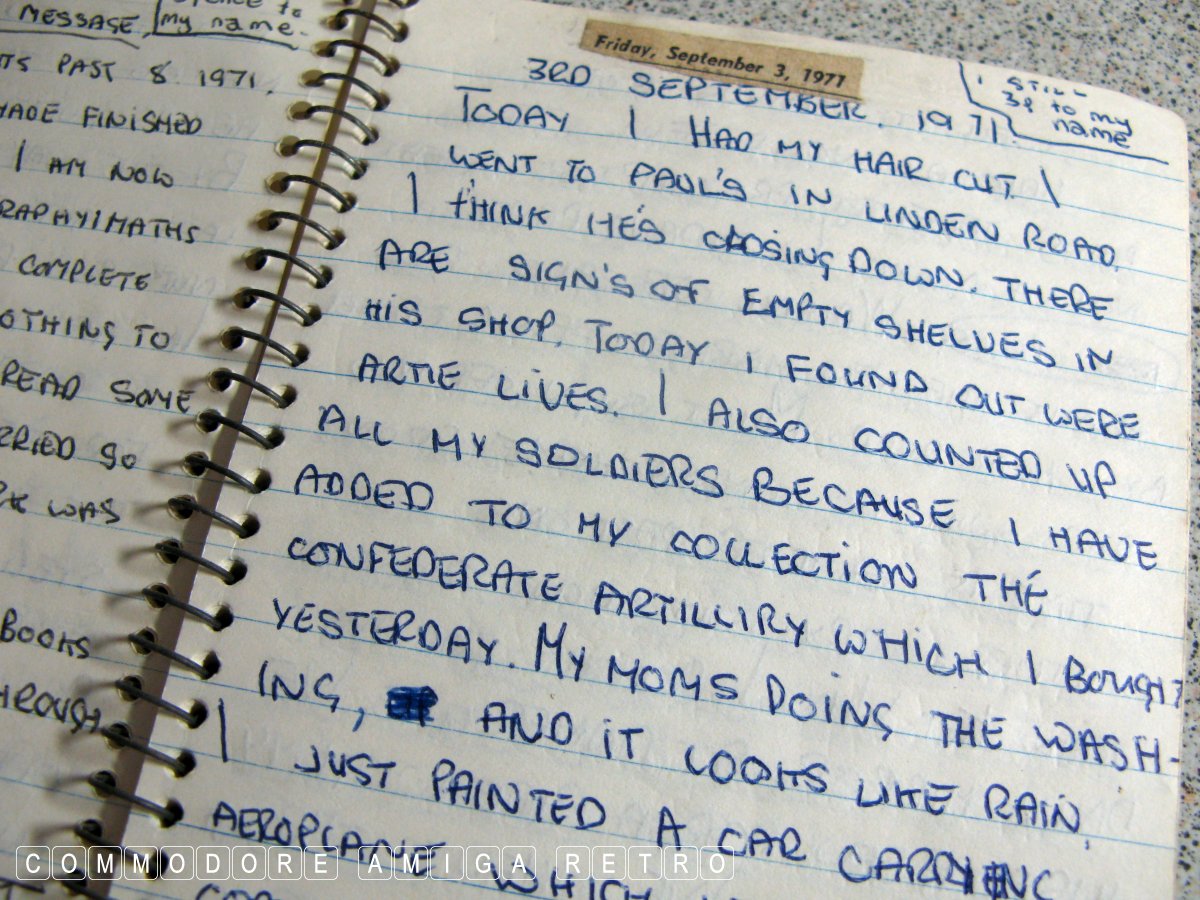 MESSAGE
my name.
PAST & 1971.
FINISHED
I AM NOW
COMPLETE
TO
READ SOME
GO
WAS
BOOKS
Friday, September 3, 1971
I STILL
to my
name
3RD SEPTEMBER. 1971.
TODAY I HAD MY HAIR CUT. I
WENT TO PAUL'S IN LINDEN ROAD.
I THINK HE'S CLOSING DOWN. THERE
ARE SIGN'S OF EMPTY SHELVES IN
HIS SHOP. TODAY I FOUND OUT WERE
ARTIE LIVES. I ALSO COUNTED UP
ALL MY SOLDIERS BECAUSE I HAVE
ADDED TO MY COLLECTION THE
CONFEDERATE ARTILLIRY WHICH I BOUGHT
YESTERDAY. MY MOMS DOING THE WASH-
ING, AND IT LOOKS LIKE RAIN.
I JUST PAINTED A CAR CARRYING
AEROPLANE WHICH
COMMODORE AMIGA RETRO